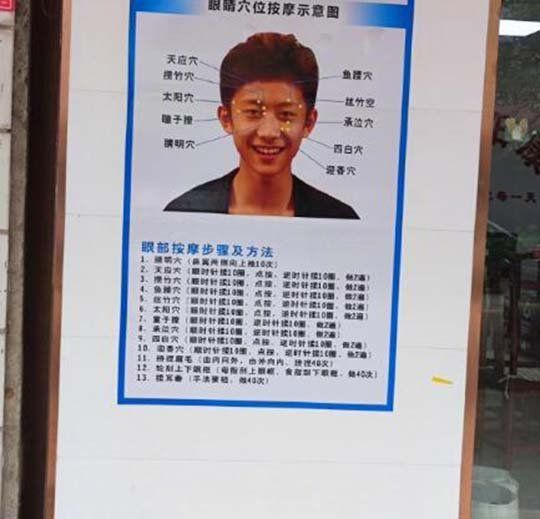 眼睛穴位按摩示意图
天应穴
攒竹穴
太阳穴
瞳子髎
睛明穴
鱼腰穴
丝竹空
承泣穴
四白穴
迎香穴
眼部按摩步骤及方法
1、睛明穴（鼻翼两侧向上推10次）
2、天应穴（顺时针揉10圈，点按，逆时针揉10圈，做2遍）
3、攒竹穴（顺时针揉10圈，点按，逆时针揉10圈，做2遍）
4、鱼腰穴（顺时针揉10圈，点按，逆时针揉10圈，做2遍）
5、丝竹穴（顺时针揉10圈，点按，逆时针揉10圈，做2遍）
6、太阳穴（顺时针揉10圈，点按，逆时针揉10圈，做2遍）
7、童子髎（顺时针揉10圈，逆时针揉10圈，做2遍）
8、承泣穴（顺时针揉10圈，逆时针揉10圈，做2遍）
9、四白穴（顺时针揉10圈，点按，逆时针揉10圈，做2遍）
10、迎香穴（顺时针揉10圈，点按，逆时针揉10圈，做2遍）
11、挤捏眉毛（由内向外，由外向内，挤捏40次）
12、轮刮上下眼眶（母指刮上眼眶，食指刮下眼眶，做40次）
13、揉耳垂（手法要轻，做40次）
每一天